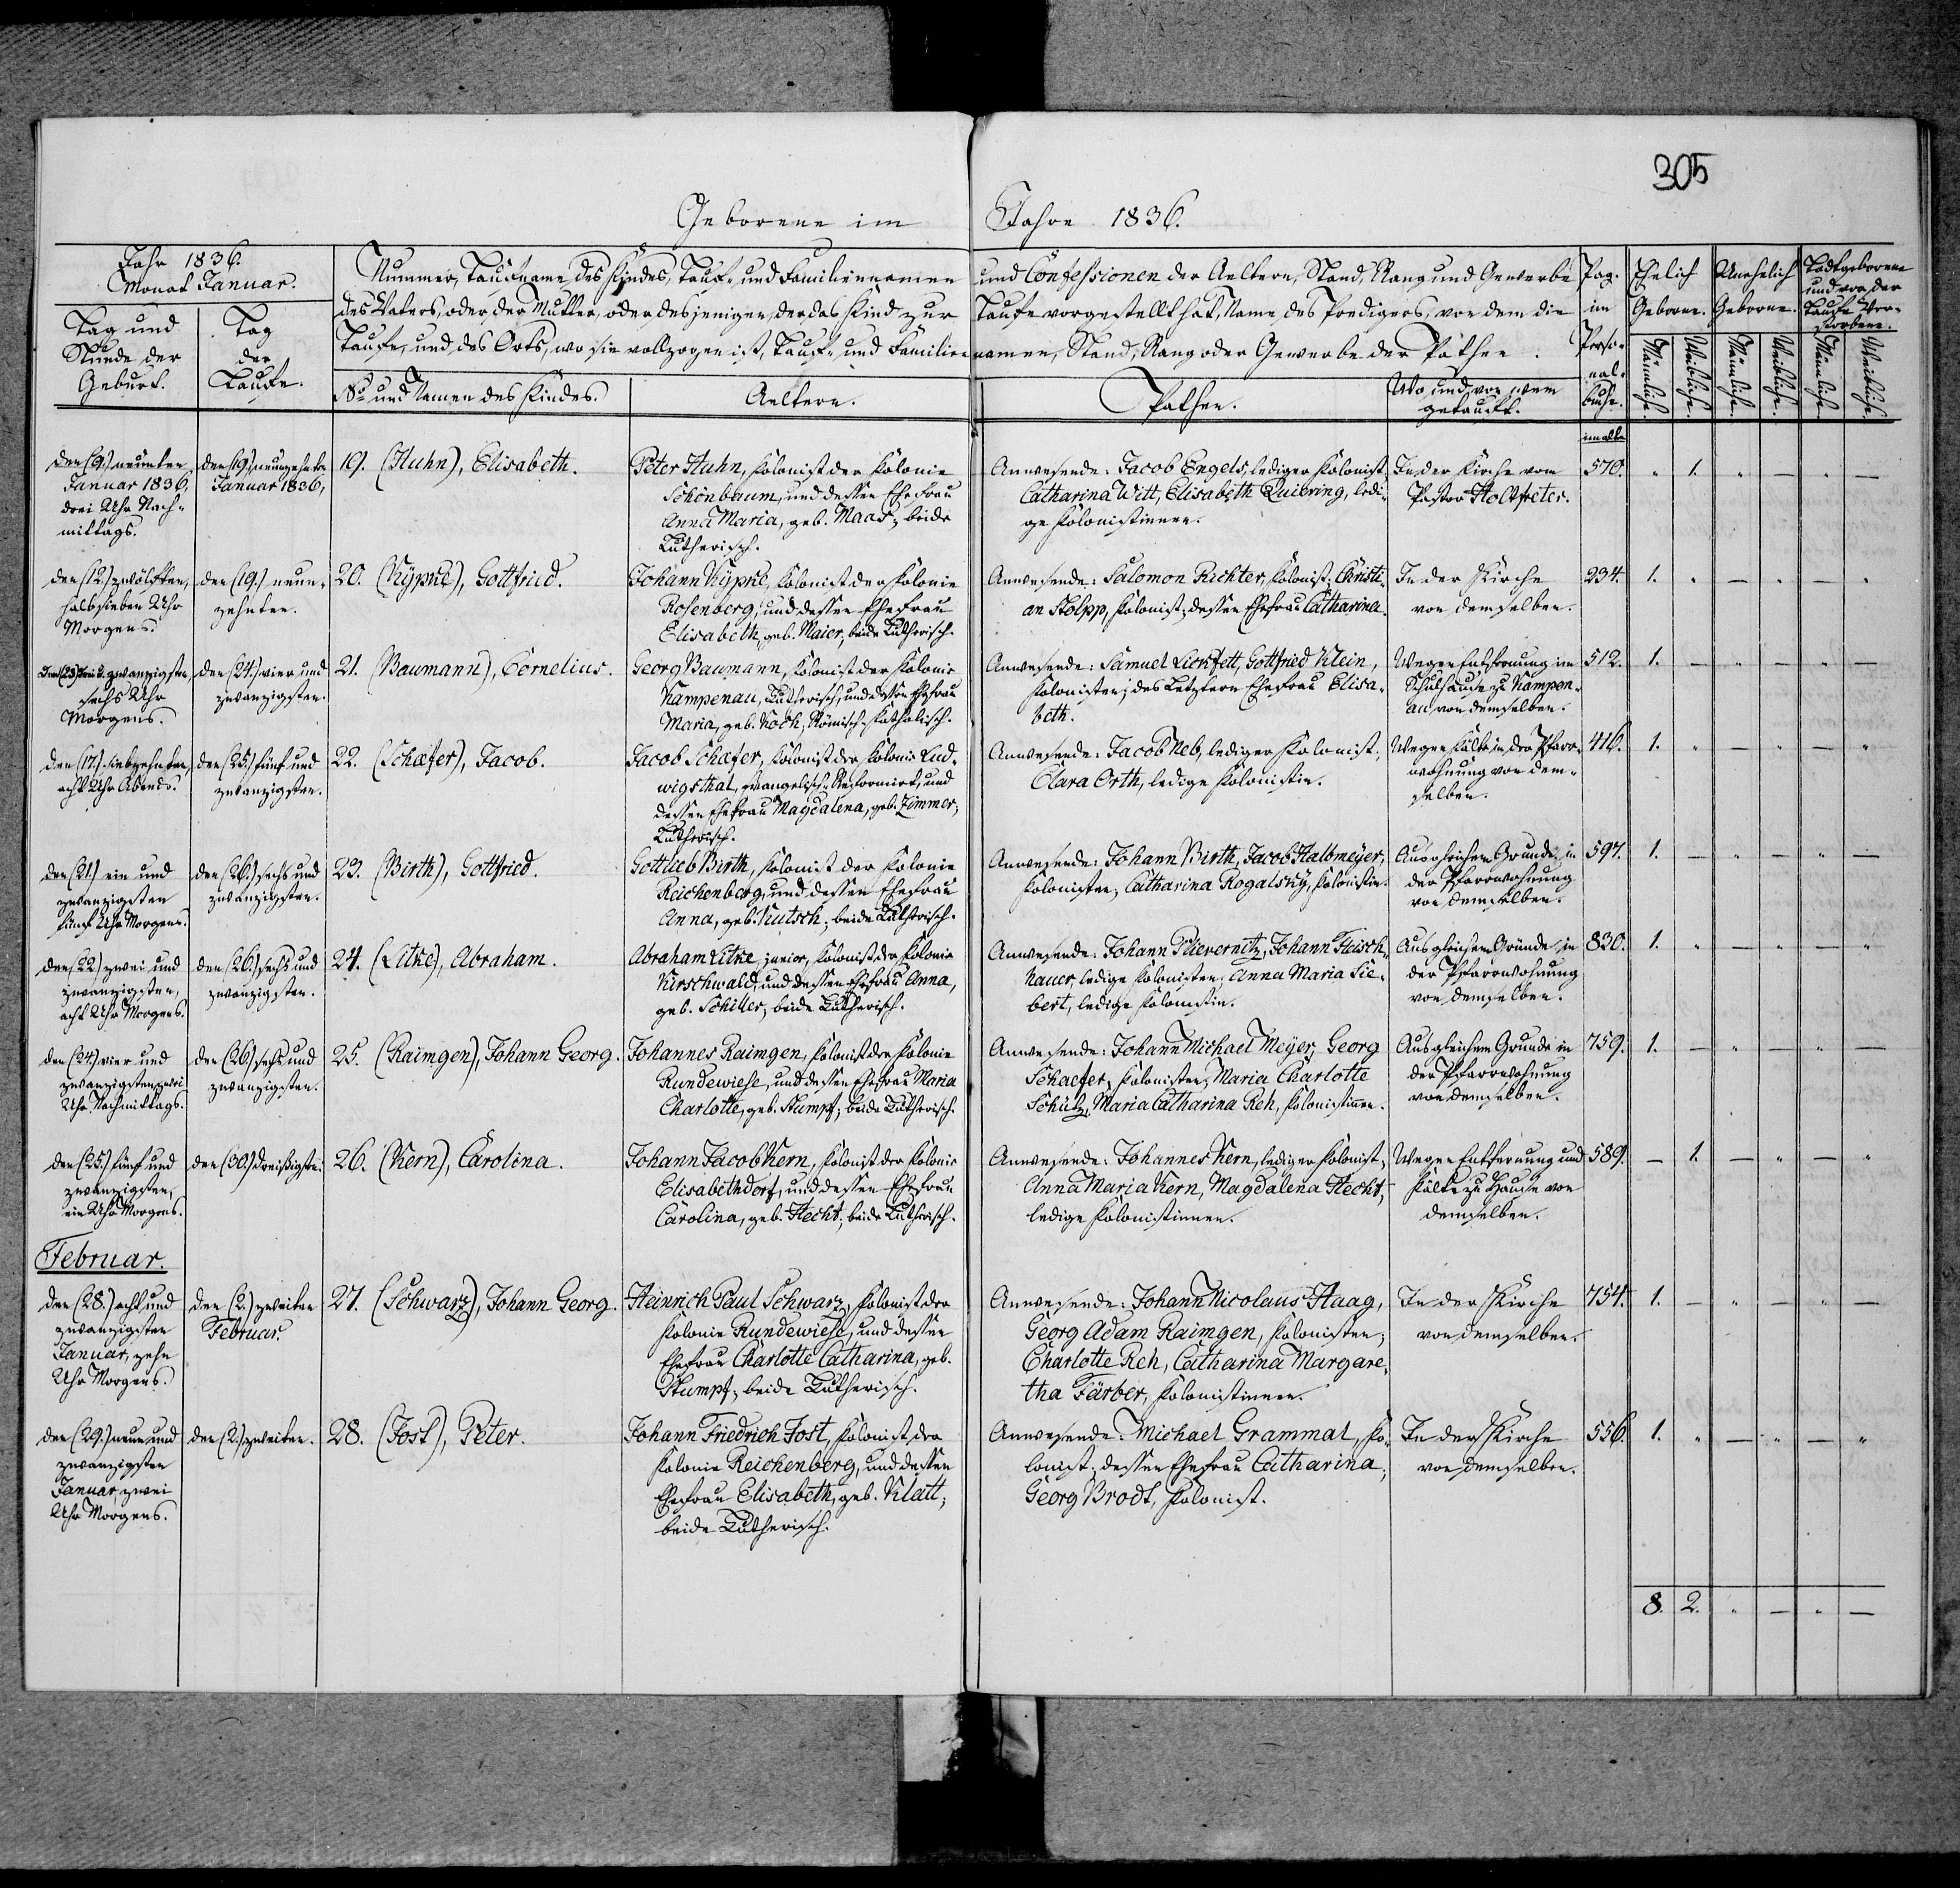 305
Geborene im Jahre 1836.
Jahr 1836.
Monat Januar.
Tag und
Stunde der
Geburt.
Tag
der
Taufe.
Nummer, Taufname des Kindes, Tauf- und Familiennamen und Confessionen der Aeltern, Stand, Rang und Gewerbe
des Vaters, oder der Mutter, oder desjenigen, der das Kind zur Taufe vorgestellt hat, Name des Predigers, vor dem die
Taufe, und des Orts, wo sie vollzogen ist, Tauf- und Familiennamen, Stand, Rang oder Gewerbe der Pathen.
No und Namen des Kindes.
Aeltern.
Pathen.
Wo und von wem
getauft.
Pag.
im
Perso-
nal-
buche.
Ehelich
Geborne.
Unehelich
Geborne.
Todtgeborene
und vor der
Taufe Ver-
storbene.
Männliche.
Weibliche.
Männliche.
Weibliche.
Männliche.
Weibliche.
den (9.) neunten
Januar 1836,
drei Uhr Nach-
mittags.
den (19.) neunzehnten
Januar 1836,
19. (Huhn), Elisabeth.
Peter Huhn, Kolonist der Kolonie
Schönbaum, und dessen Ehefrau
Anna Maria, geb. Maas; beide
Lutherisch.
Anwesende: Jacob Engels, lediger Kolonist;
Catharina Witt, Elisabeth Quiering, ledi-
ge Kolonistinnen.
In der Kirche vom
Pastor Holtfreter.
im alten
570. " 1. " — " —
den (12.) zwölften,
halb sieben Uhr
Morgens.
den (19.) neun-
zehnten.
20. (Kypke), Gottfried.
Johann Kypke, Kolonist der Kolonie
Rosenberg, und dessen Ehefrau
Elisabeth, geb. Maier; beide Lutherisch.
Anwesende: Salomon Richter, Kolonist; Christi-
an Stolpp, Kolonist; dessen Ehefrau Catharina.
In der Kirche
von demselben.
234. 1. " — " — "
Den (23) drei u. zwanzigsten
sechs Uhr
Morgens.
den (24.) vier und
zwanzigsten.
21. (Baumann), Cornelius.
Georg Baumann, Kolonist der Kolonie
Kampenau, Lutherisch, und dessen Ehefrau
Maria, geb. Koch, Römisch-Katholisch.
Anwesende: Samuel Lickfett, Gottfried Klein,
Kolonisten; des Letztern Ehefrau Elisa-
beth.
Wegen Entfernung im
Schulhause zu Kampen-
au von demselben.
512. 1. — " — " —
den (17.) siebzehnten,
acht Uhr Abends.
den (25.) fünf und
zwanzigsten.
22. (Schæfer), Jacob.
Jacob Schæfer, Kolonist der Kolonie Lud-
wigsthal, Evangelisch-Reformirt, und
dessen Ehefrau Magdalena, geb. Zimmer;
Lutherisch.
Anwesende: Jacob Neb, lediger Kolonist;
Clara Orth, ledige Kolonistin.
Wegen Kälte in der Pfarr-
wohnung von dem-
selben.
416. 1. " — " — "
den (21.) ein und
zwanzigsten
fünf Uhr Morgens.
den (26.) sechs und
zwanzigsten.
23. (Birth), Gottfried.
Gottlieb Birth, Kolonist der Kolonie
Reichenberg, und dessen Ehefrau
Anna, geb. Kutsch; beide Lutherisch.
Anwesende: Johann Birth, Jacob Halbmeyer,
Kolonisten; Catharina Rogalsky, Kolonistin.
Aus gleichem Grunde in
der Pfarrwohnung
von demselben.
597. 1. — " — " —
den (22) zwei und
zwanzigsten,
acht Uhr Morgens.
den (26.) sechs und
zwanzigsten.
24. (Litke), Abraham.
Abraham Litke, junior, Kolonist der Kolonie
Kirschwald, und dessen Ehefrau Anna,
geb. Schiller; beide Lutherisch.
Anwesende: Johann Plievernitz, Johann Fleisch-
hauer, ledige Kolonisten; Anna Maria Sie-
bert, ledige Kolonistin.
Aus gleichem Grunde in
der Pfarrwohnung
von demselben.
830. 1. " — " — "
den (24) vier und
zwanzigsten, zwei
Uhr Nachmittags.
den (26.) sechs und
zwanzigsten.
25. (Raimgen), Johann Georg.
Johannes Raimgen, Kolonist der Kolonie
Rundewiese, und dessen Ehefrau Maria
Charlotte, geb. Stumpf; beide Lutherisch.
Anwesende: Johann Michael Meyer, Georg
Schaefer, Kolonisten; Maria Charlotte
Schütz, Maria Catharina Reh, Kolonistinnen.
Aus gleichem Grunde in
der Pfarrwohnung
von demselben.
759. 1. — " — " —
den (25.) fünf und
zwanzigsten,
ein Uhr Morgens.
den (30.) dreißigsten.
26. (Kern), Carolina.
Johann Jacob Kern, Kolonist der Kolonie
Elisabethdorf, und dessen Ehefrau
Carolina, geb. Hecht; beide Lutherisch.
Anwesende: Johannes Kern, lediger Kolonist;
Anna Maria Kern, Magdalena Hecht,
ledige Kolonistinnen.
Wegen Entfernung und
Kälte zu Hause von
demselben.
589. — 1. — " — "
Februar.
den (28.) acht und
zwanzigsten
Januar, zehn
Uhr Morgens.
den (2.) zweiten
Februar.
27. (Schwarz), Johann Georg.
Heinrich Paul Schwarz, Kolonist der
Kolonie Rundewiese, und dessen
Ehefrau Charlotte Catharina, geb.
Stumpf; beide Lutherisch.
Anwesende: Johann Nicolaus Haag,
Georg Adam Raimgen, Kolonisten;
Charlotte Reh, Catharina Margare-
tha Färber, Kolonistinnen.
In der Kirche
von demselben.
754. 1. — " — " —
den (29.) neun und
zwanzigsten
Januar, zwei
Uhr Morgens.
den (2.) zweiten.
28. (Jost), Peter.
Johann Friedrich Jost, Kolonist der
Kolonie Reichenberg, und dessen
Ehefrau Elisabeth, geb. Klatt;
beide Lutherisch.
Anwesende: Michael Grammal, Ko-
lonist; dessen Ehefrau Catharina;
Georg Brodt, Kolonist.
In der Kirche
von demselben.
556. 1. " — " — "
8. 2. " — " —